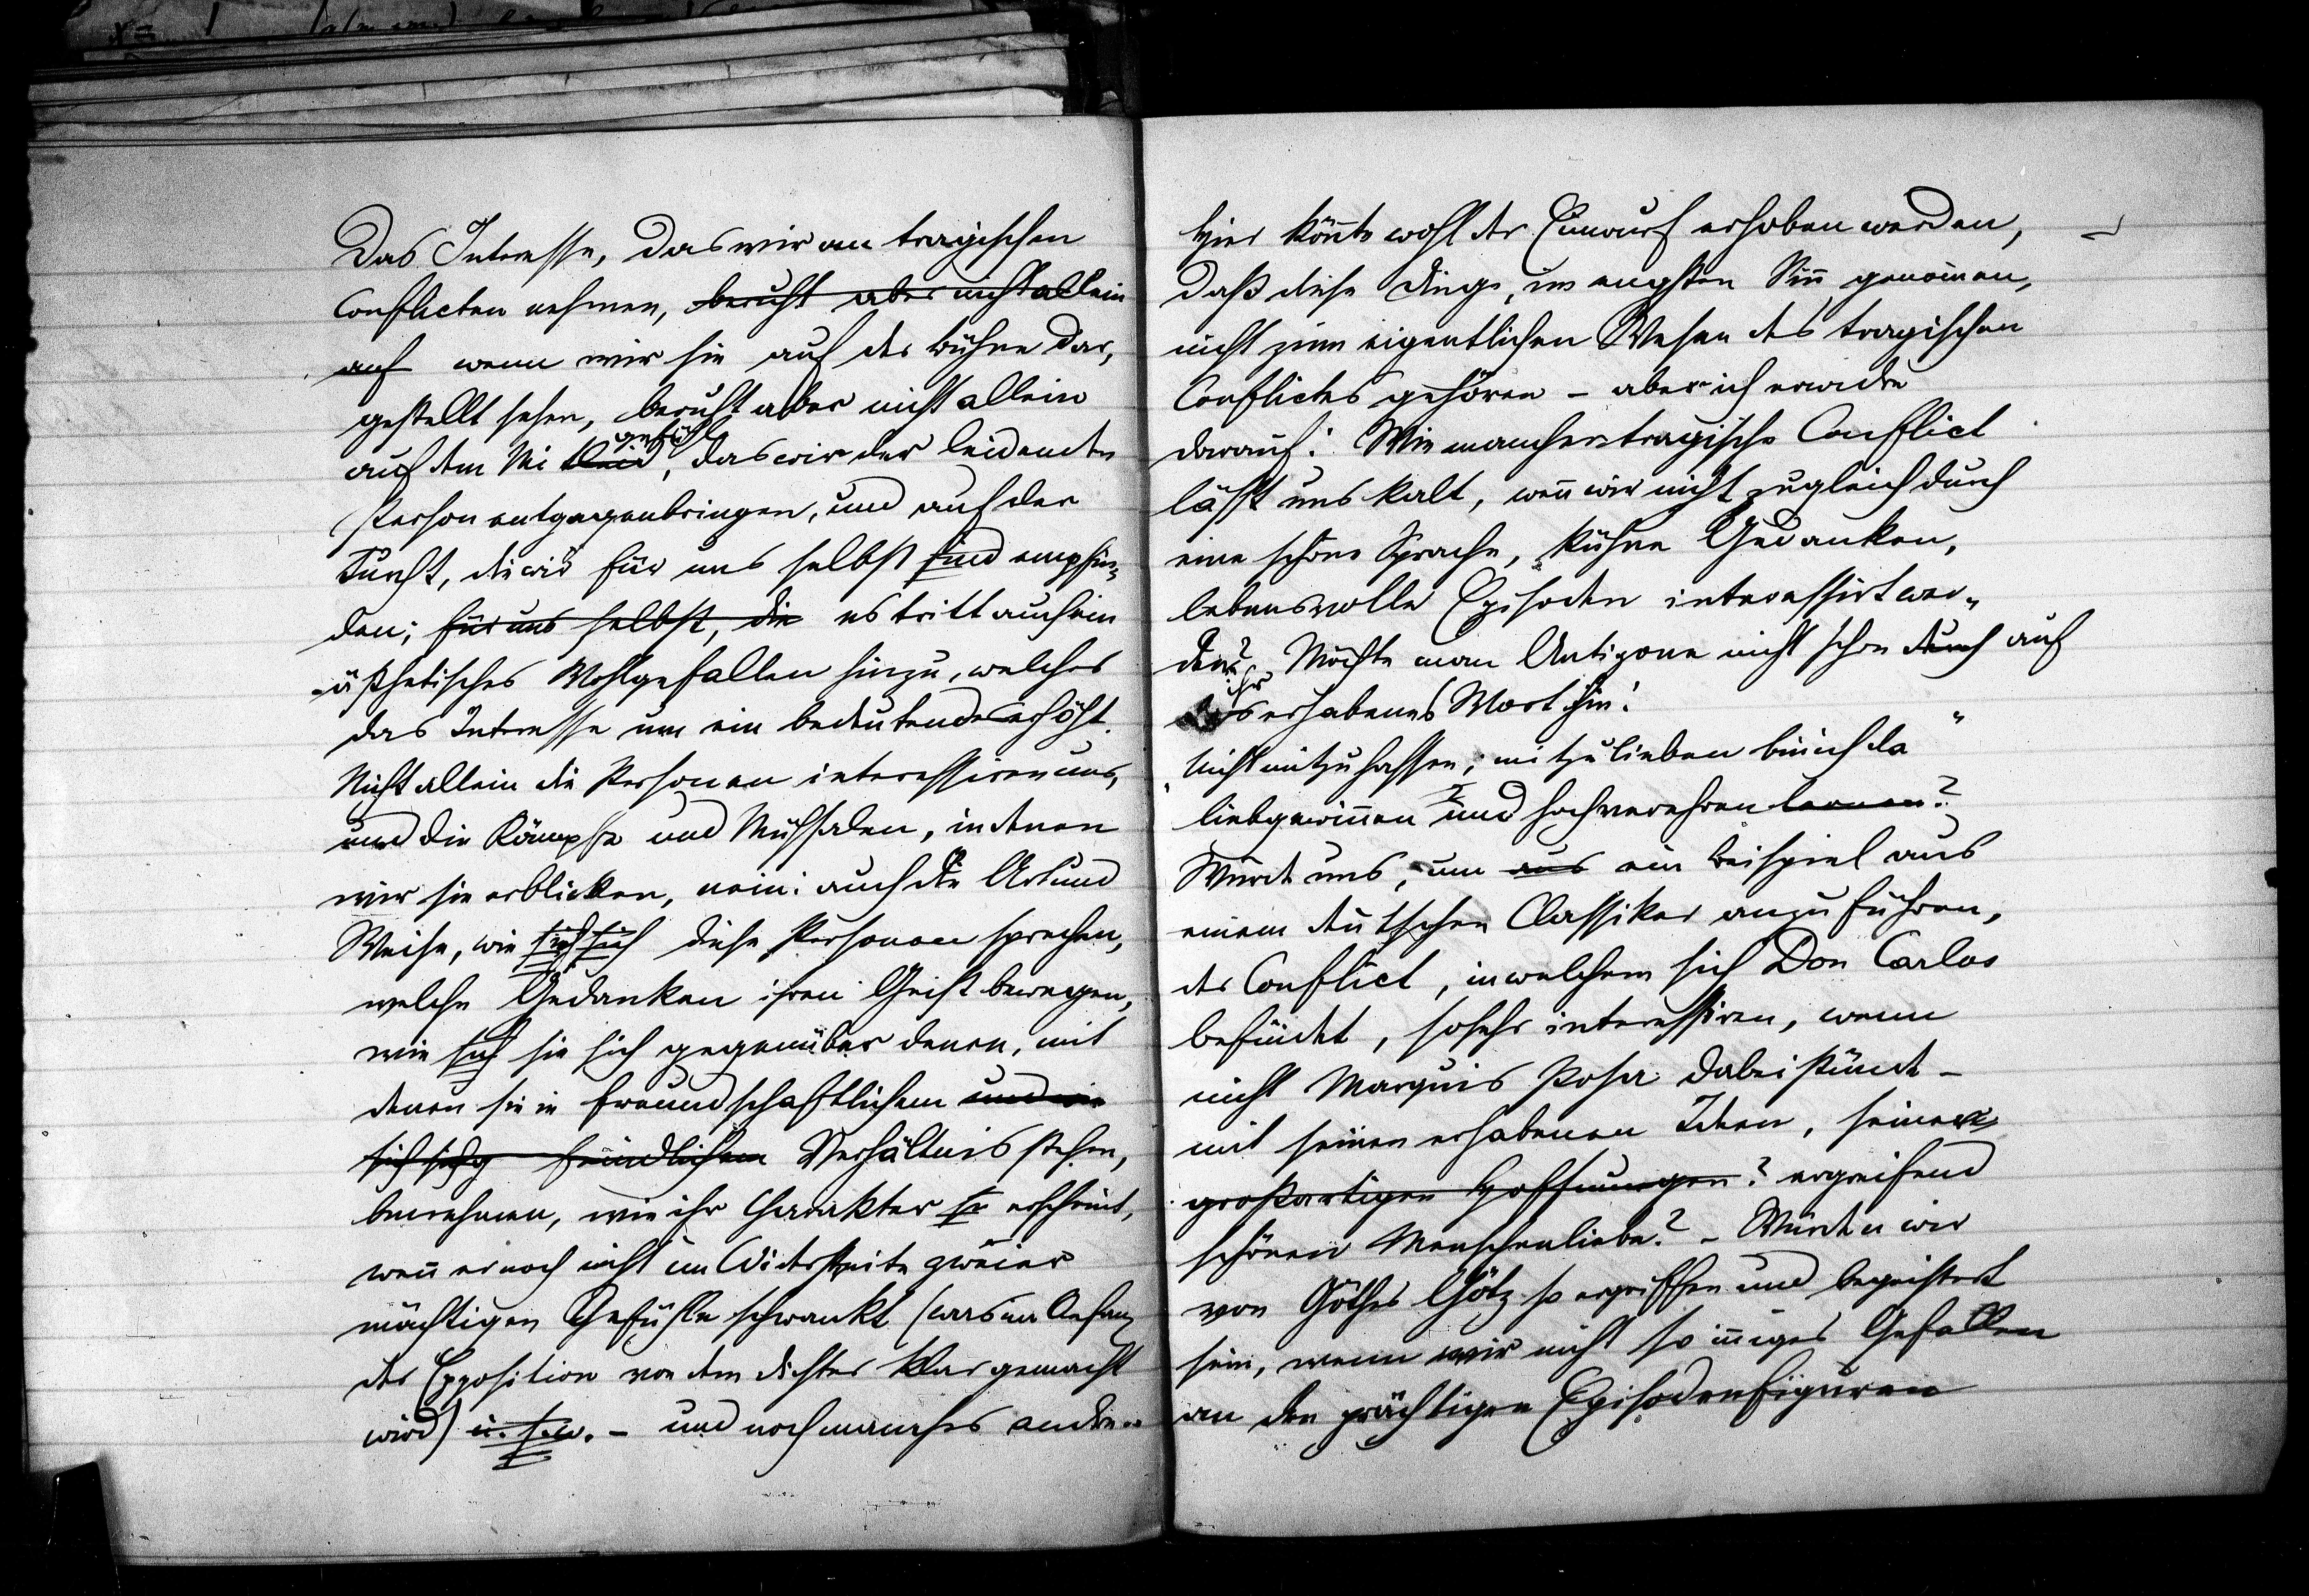 Das Interesse, das wir an tragischen
Conflicten nehmen, beruht aber nicht allein
auf wenn wir sie auf der Bühne dar,
gestellt sehen, beruht aber nicht allein
auf dem Mitgefühl, das wir der leidenden
Person entgegenbringen, und auf der
Furcht, die wir für uns selbst sind empfin-
den; für uns selbst, die es tritt auch ein
ästhetisches Wohlgefallen hinzu, welches
das Interesse um ein bedeutendes erhöht.
Nicht allein die Personen interessiren uns,
und die Kämpfe und Mühsalen, in denen
wir sie erblicken, nein: auch die Art und
Weise, wie sich sich diese Personen sprechen,
welche Gedanken ihren Geist bewegen,
wie sich sie sich gegenüber denen, mit
denen sie in freundschaftlichem und wie
sich feindlichem Verhältnis stehen,
benehmen, wie ihr Charakter so erscheint,
weñ er noch nicht im Widerstreite zweier
mächtigen Gefühle schwankt (was im Anfang
der Exposition von dem Dichter klar gemacht
wird) u. s. w. – und noch manches andre.
Hier könte wohl der Einwurf erhoben werden,
daß diese Dinge, im engsten Siñ genom̃en,
nicht zum eigentlichen Wesen des tragischen
Conflictes gehören – aber ich erwidre
darauf: Wie mancher tragische Conflict
läßt uns kalt, weñ wir nicht zugleich durch
eine schöne Sprache, kühne Gedanken,
lebensvolle Episoden interessirt wer-
den? Möchte man Antigone nicht schon durch auf
ihr erhabenes Wort hin:
"Nicht mitzuhassen, mitzulieben bin ich da"
liebgewiñen und hochverehren lernen?
Würde uns, um aus ein Beispiel aus
einem deutschen Classiker anzuführen,
der Conflict, in welchem sich Don Carlos
befindet, so sehr interessiren, wenn
nicht Marquis Posa dabei stünde –
mit seinen erhabenen Ideen, seiner
großartigen Hoffnungen? ergreifend
schönen Menschenliebe? – Würden wir
von Göthes Götz so ergriffen und begeistert
sein, wenn wir nicht so iñiges Gefallen
an den prächtigen Episodenfiguren